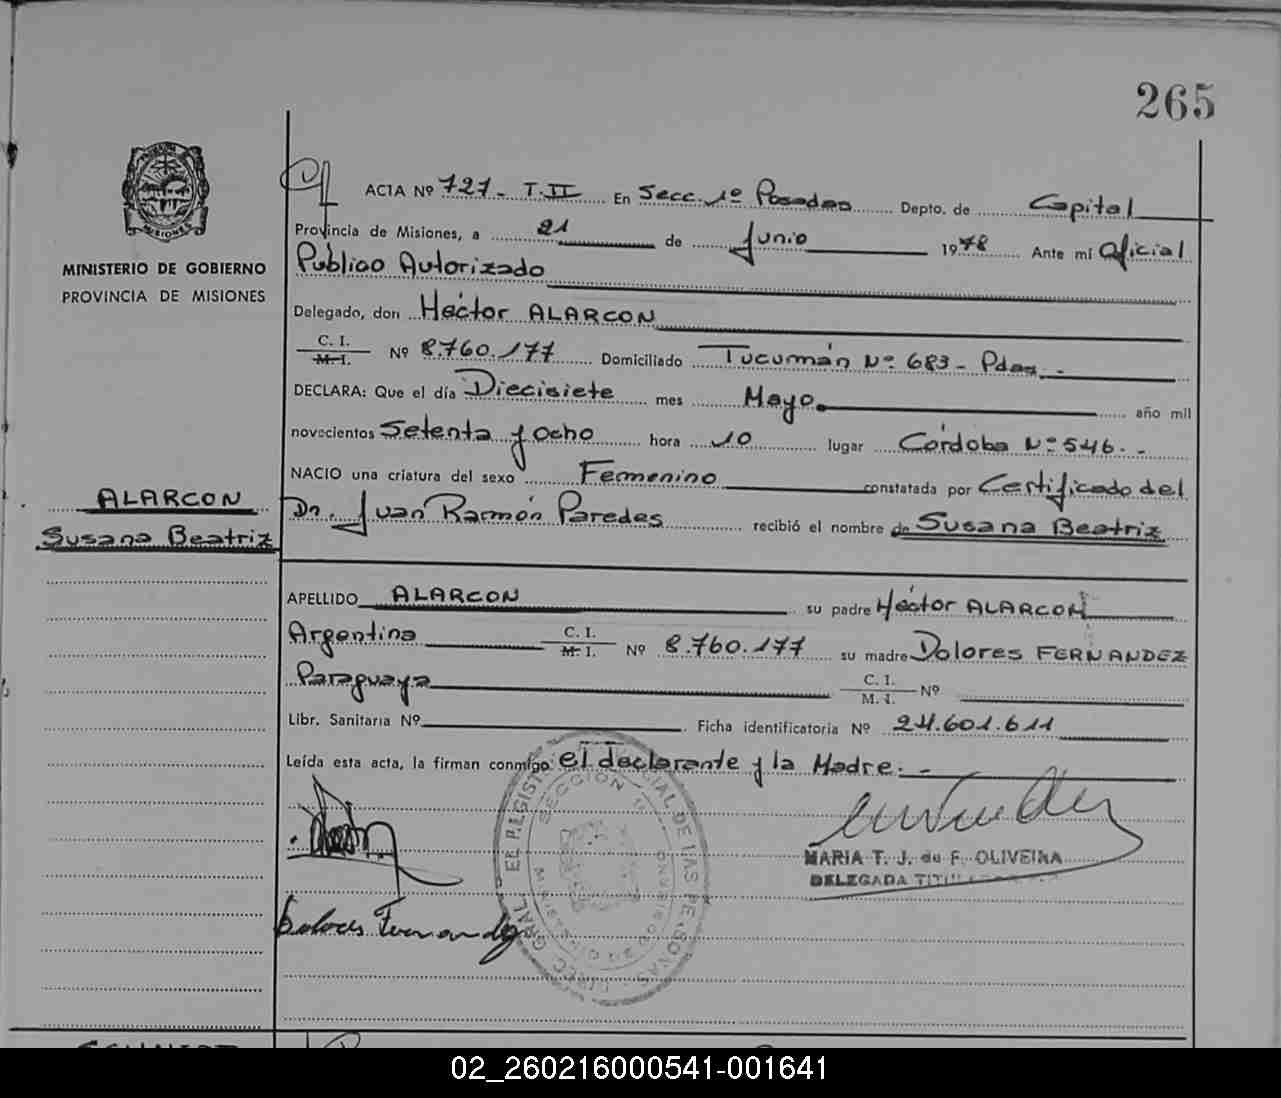 265
ACTA Nº 727 - T. II En Secc. 1º Posadas Depto. de Capital
Provincia de Misiones, a 21 de Junio 1978 Ante mí Oficial
Público Autorizado
MINISTERIO DE GOBIERNO
PROVINCIA DE MISIONES
Delegado, don Héctor ALARCON
C. I.
M. I. Nº 8.760.177 Domiciliado Tucumán Nº 683 - Pdas. -
DECLARA: Que el día Diecisiete mes Mayo año mil
novecientos Setenta y Ocho hora 10 lugar Córdoba Nº 546. -
NACIO una criatura del sexo Femenino constatada por Certificado del
Dr. Juan Ramón Paredes recibió el nombre de Susana Beatriz
ALARCON
Susana Beatriz
APELLIDO ALARCON su padre Héctor ALARCON
Argentina C. I.
M. I. Nº 8.760.177 su madre Dolores FERNANDEZ
Paraguaya C. I.
M. I. Nº
Libr. Sanitaria Nº Ficha identificatoria Nº 24.601.611
Leída esta acta, la firman conmigo el declarante y la Madre. -
MARIA T. J. de F. OLIVEIRA
DELEGADA TITULAR
Dolores Fernandez
SECCION 1ª
MISIONES
02_260216000541-001641